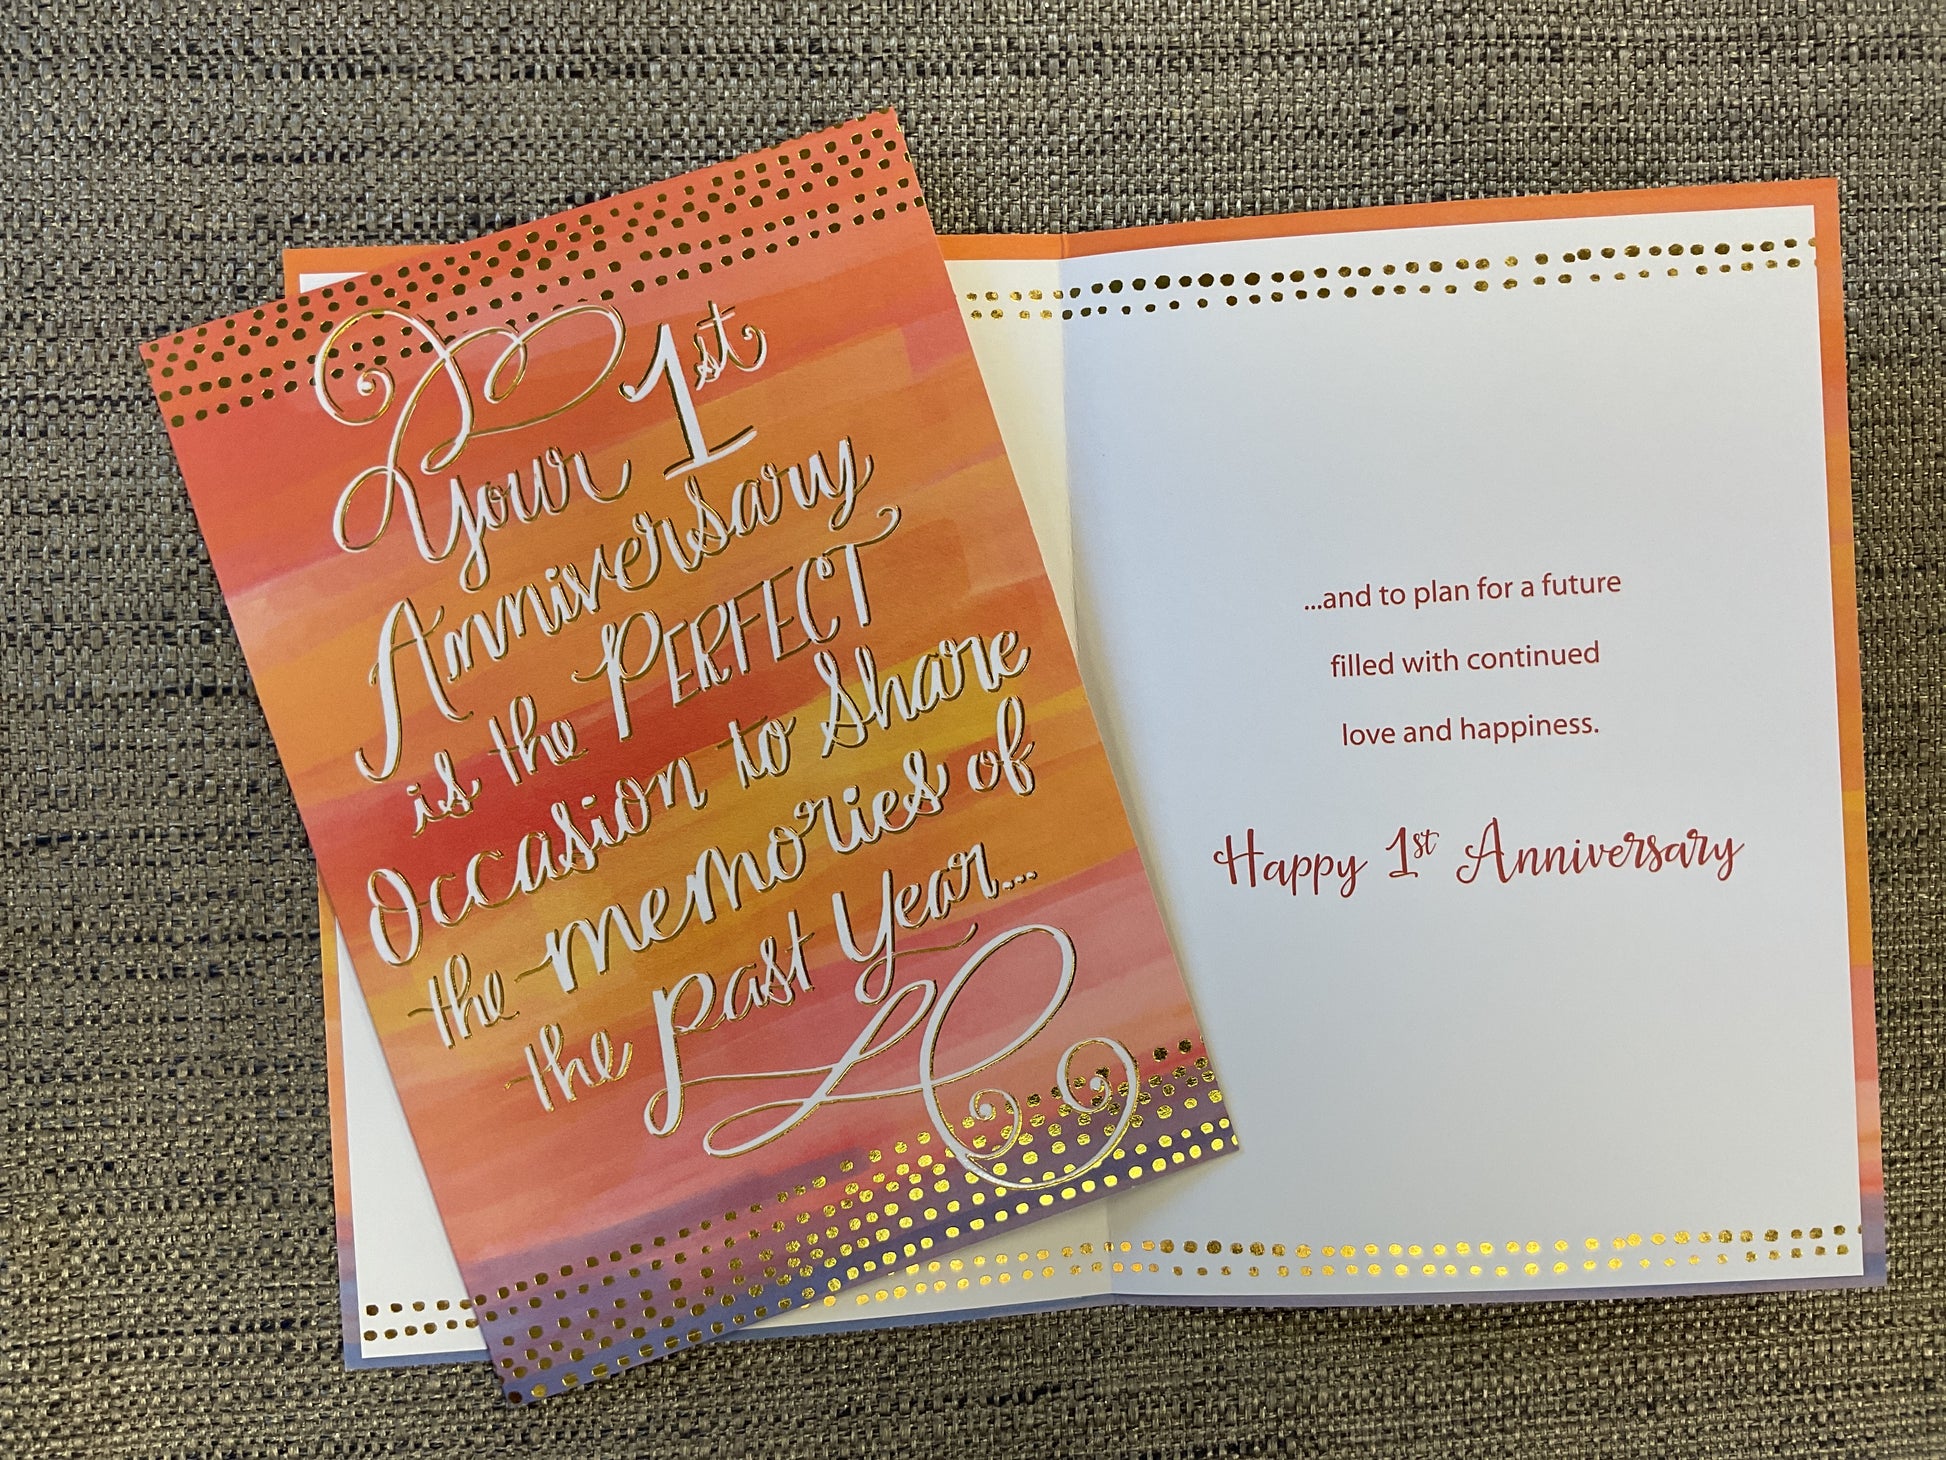 Your 1st
Anniversary
is the PERFECT
Occasion to Share
the memories of
the past Year...
...and to plan for a future
filled with continued
love and happiness.
Happy 1st Anniversary